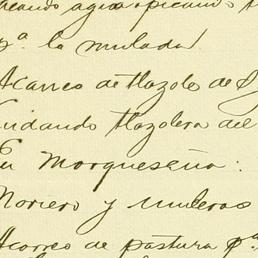 pª. la mulada
Acarreo de tlazole de
Cuidando tlazolera del
En Morqueseña:
Noriero y muleros
Acarreo de pastura pª.